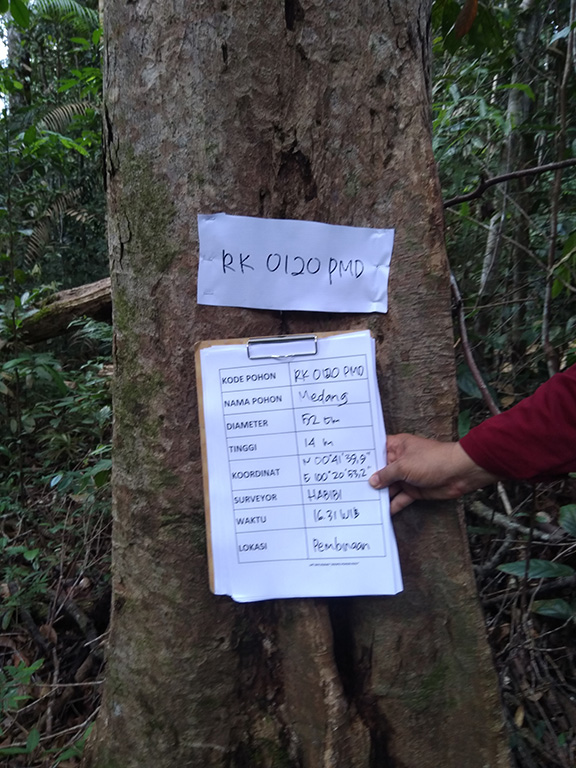 RK 0120 PMD
KODE POHON RK 0120 PMD
NAMA POHON Medang
DIAMETER 52 cm
TINGGI 14 m
KOORDINAT N 00°41'39,9"
E 100°20'53,2"
SURVEYOR HABIBI
WAKTU 16.31 WIB
LOKASI Pembinaan